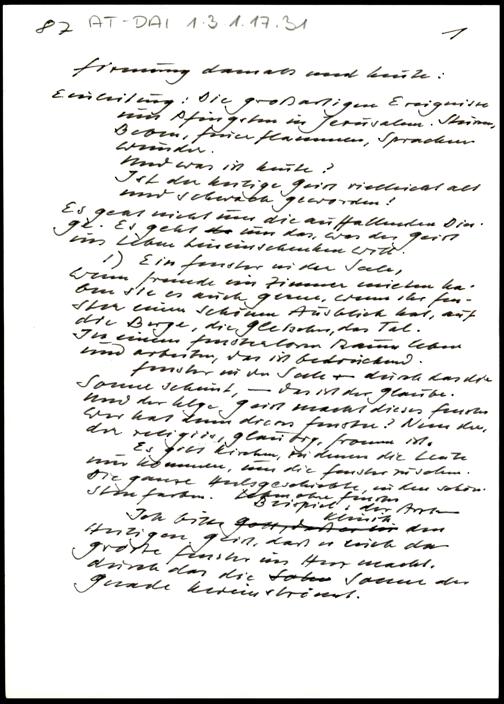 87 AT-DAI 1.3 1.17.31 1
Firmung damals und heute:
Einleitung: Die großartigen Ereignisse
um Pfingsten in Jerusalem. Sturm,
Beben, Feuerflammen, Sprachen
wunder.
Und was ist heute?
Ist der heilige Geist vielleicht alt
und schwach geworden?
Es geht nicht um die auffallenden Din-
ge. Es geht um das, was der Geist
ins Leben hineinschenken will.
1) Ein Fenster in der Seele,
wenn Fremde ein Zimmer mieten ha-
ben sie es auch gerne, wenn ihr Fen-
ster einen schönen Ausblick hat, auf
die Berge, die Gletscher, das Tal.
In einem fensterlosen Raum leben
und arbeiten, das ist bedrückend.
Fenster in der Seele – durch das die
Sonne scheint, – das ist der Glaube.
Und der hlge Geist macht dieses Fenster
Wer hat denn dieses Fenster? Nun der,
der religiös, gläubig, fromm ist.
Es gibt Kirchen, zu denen die Leute
nur kommen, um die Fenster zu sehen.
Die ganze Heilsgeschichte, in den schön-
sten Farben. ohne Fenster
Beispiel: der Arzt
Klinik
Ich bitte den
Heiligen Geist, daß er euch das
große Fenster ins Herz macht.
durch das die Sonne der
Gnade hereinströmt.